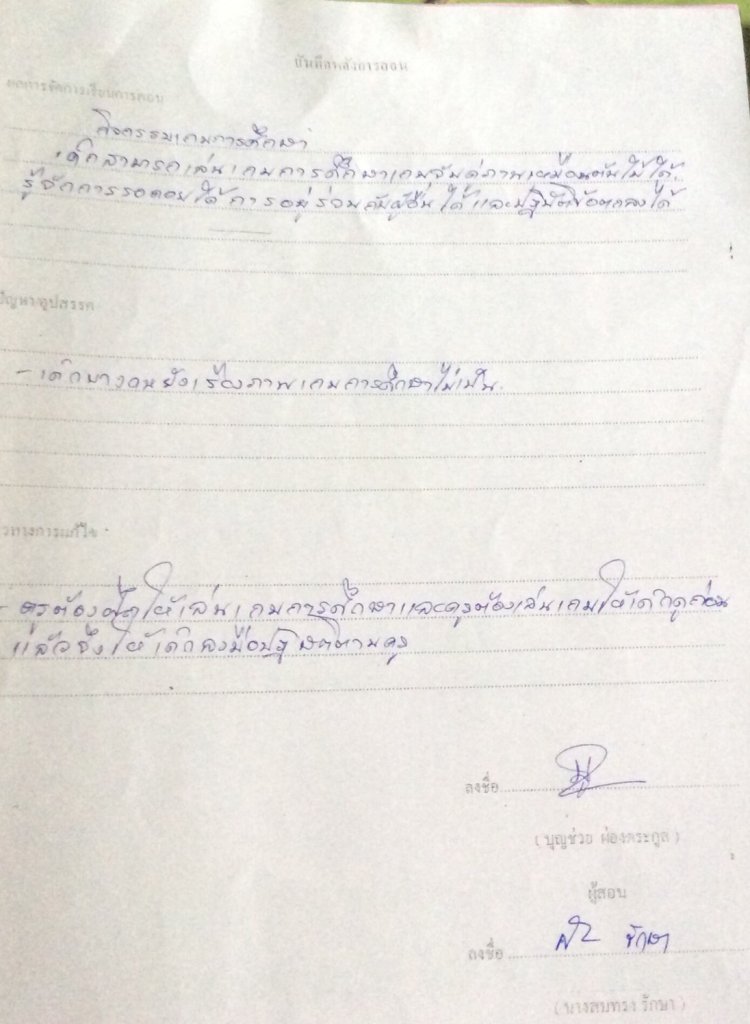 บันทึกหลังการสอน
ผลการจัดการเรียนการสอน
กิจกรรมเกมการศึกษา
เด็กสามารถเล่นเกมการศึกษาเกมจับคู่ภาพเหมือนต้นไม้ได้
รู้จักการรอคอยได้ การอยู่ร่วมกับผู้อื่นได้ และปฏิบัติข้อตกลงได้
ปัญหา/อุปสรรค
- เด็กบางคนยังเรียงภาพเกมการศึกษาไม่เป็น.
แนวทางการแก้ไข
- ครูต้องให้เล่นเกมการศึกษาและครูต้องเล่นเกมให้เด็กดูก่อน
แล้วจึงให้เด็กลงมือปฏิบัติตามครู
ลงชื่อ
(บุญช่วย ผ่องตระกูล)
ผู้สอน
ลงชื่อ รักษา
(นางสมทรง รักษา)